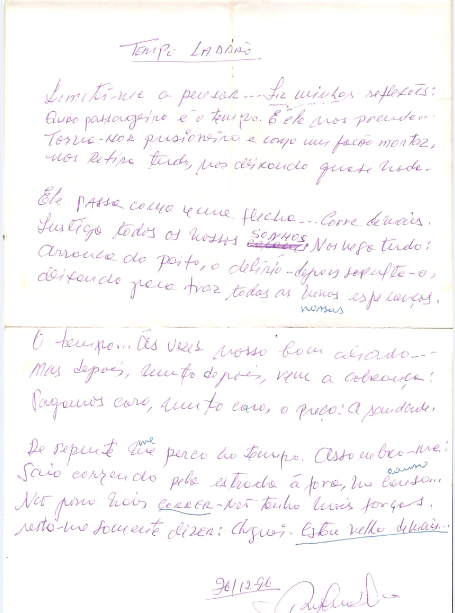 Tempo Ladrão
Limitei-me a pensar... Fiz minhas reflexões:
Quão passageiro é o tempo. E ele nos prende...
Torna-nos prisioneiro e como um facão mortaz,
nos retira tudo, nos deixando quase nada.
Ele passa como uma flecha... Corre demais.
Fustiga todos os nossos SONHOS. Nos nega tudo:
arranca do peito, o delírio - depois sepulta-o,
deixando para traz todas as nossas esperanças.
O tempo... Às vezes nosso bom aliado...
Mas depois, muito depois, vem a cobrança:
Pagamos caro, muito caro, o preço: A saudade.
De repente me perco no tempo. Assombro-me:
Saio correndo pela estrada à fora, me canso...
Não posso mais correr - Não tenho mais forças.
resta-me somente dizer: Cheguei. Estou velho demais...
26/12-96